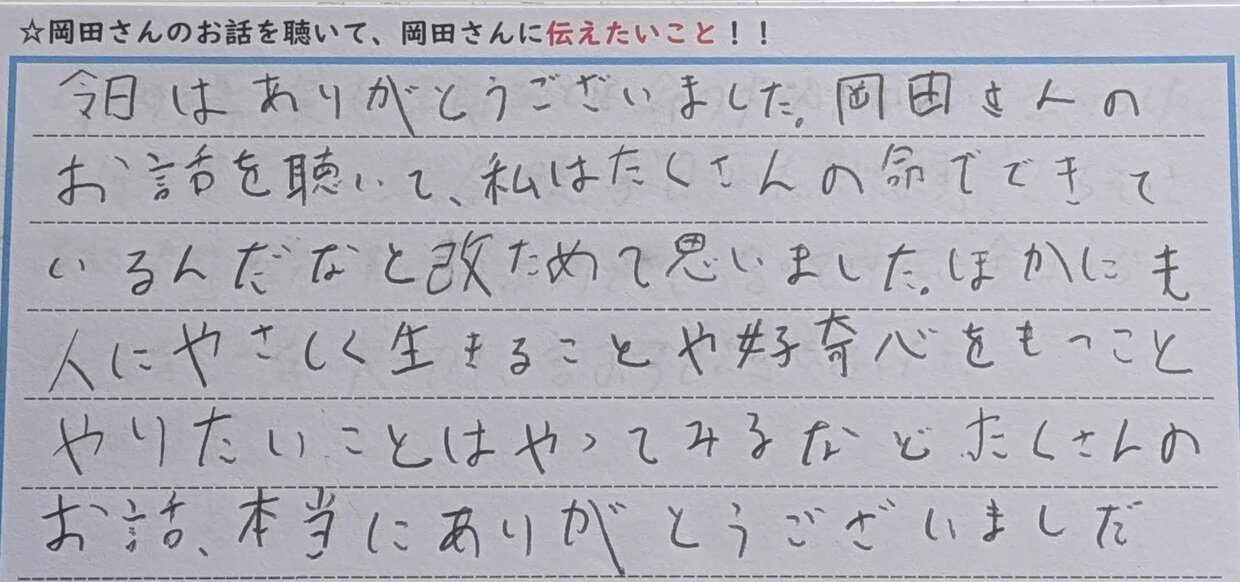 ☆岡田さんのお話を聴いて、岡田さんに伝えたいこと！！
今日はありがとうございました。岡田さんの
お話を聴いて、私はたくさんの命でできて
いるんだなと改ためて思いました。ほかにも
人にやさしく生きることや好奇心をもつこと
やりたいことはやってみるなどたくさんの
お話、本当にありがとうございましだ